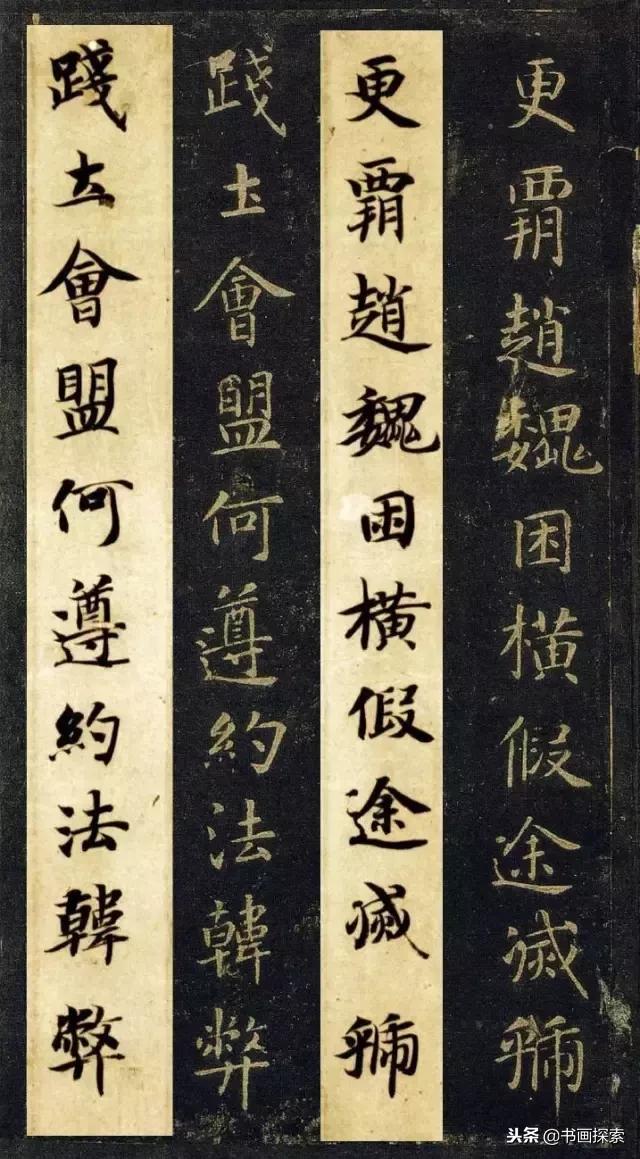 更霸趙魏困橫假途滅虢
更霸趙魏困橫假途滅虢
踐土會盟何遵約法韓弊
踐土會盟何遵約法韓弊
头条 @书画探索